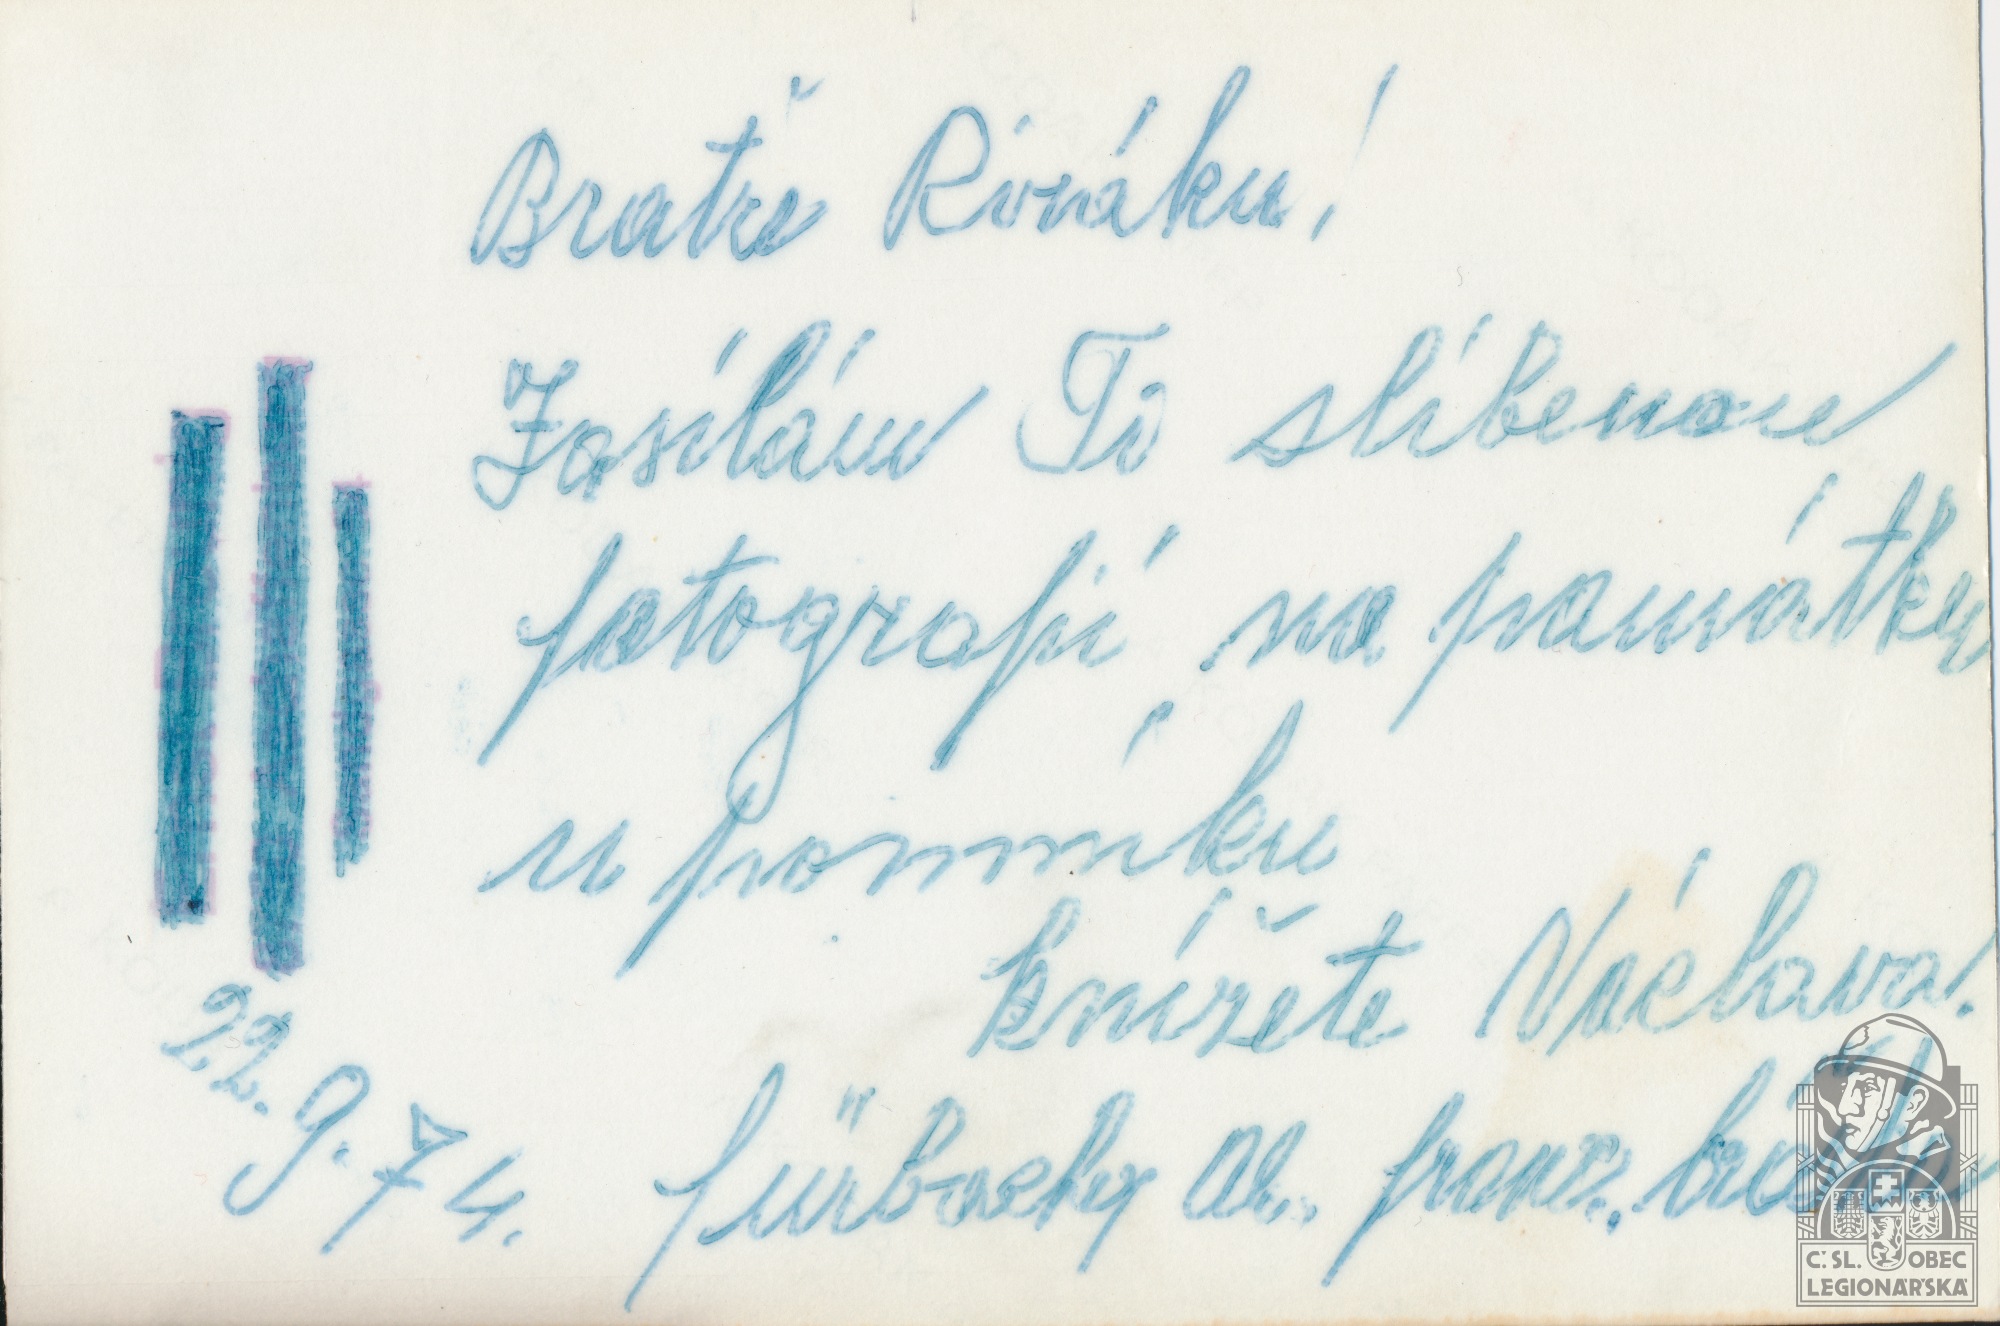 Bratře Rivnáku!
Zasílám Ti slíbenou
fotografií na památku
u pomníku
knížete Václava.
22. 9. 74.
Fürbachy Al. franc.
Č. SL. OBEC
LEGIONÁŘSKÁ